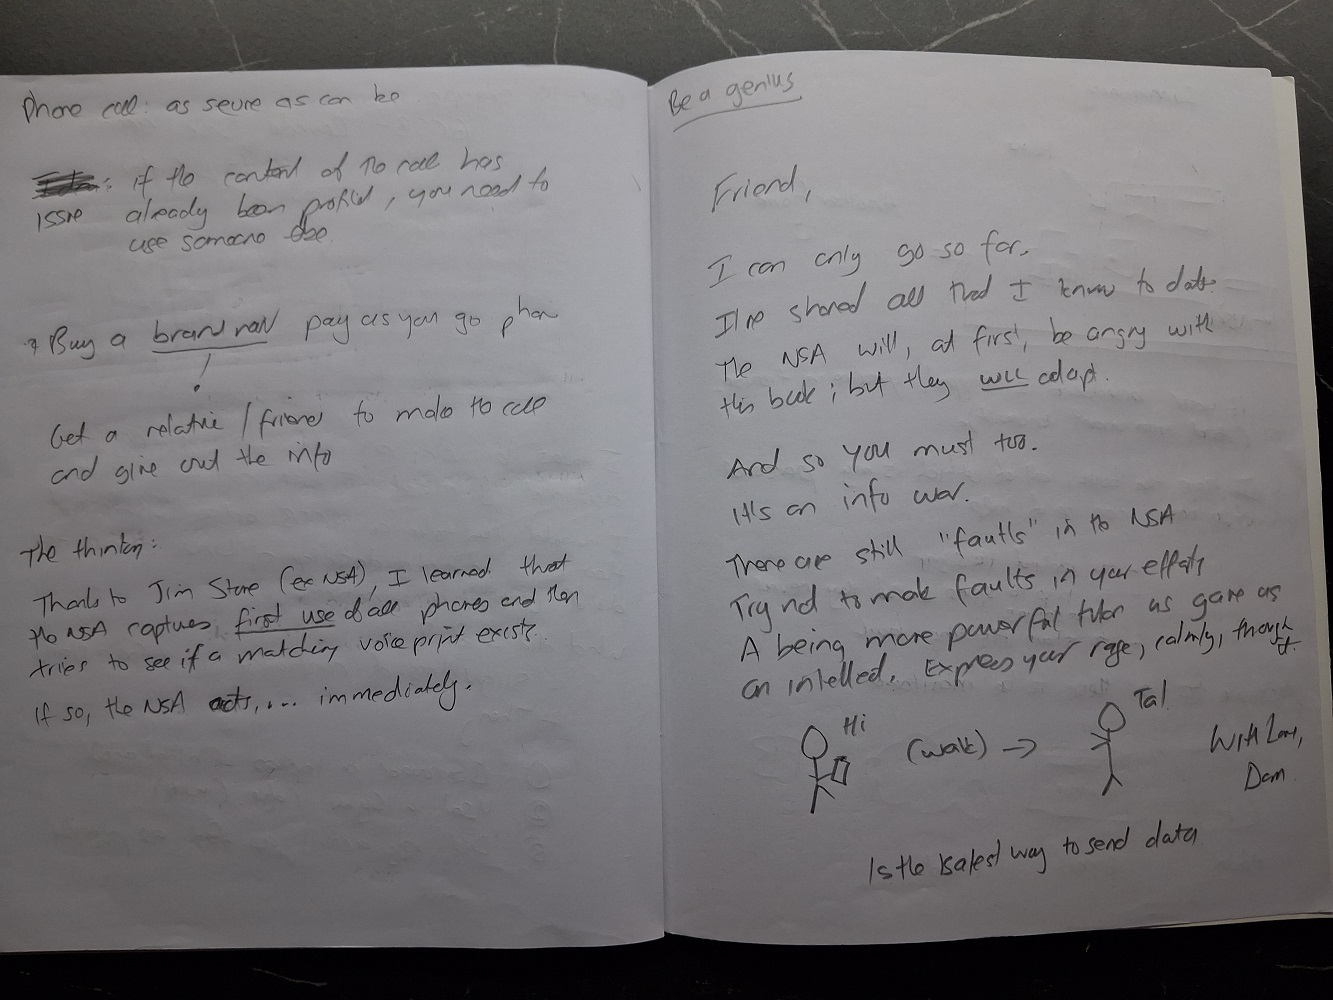 Phone call: as secure as can be
: if the content of the call has
ISSUE already been profiled, you need to
use someone else
Buy a brand new pay as you go phone
!
Get a relative / friend to make the call
and give out the info
The thinking:
Thanks to Jim Stone (ex NSA), I learned that
the NSA captures first use of all phones and then
tries to see if a matching voice print exists.
If so, the NSA acts.... immediately.
Be a genius
Friend,
I can only go so far.
I've shared all that I know to date.
The NSA will, at first, be angry with
this book; but they will adapt.
And so you must too.
It's an info war.
There are still "faults" in the NSA
Try not to make faults in your efforts
A being more powerful than us gave us
an intellect. Express your rage, calmly, through
it.
Hi
(walk) →
Ta!
With Love,
Dom
Is the safest way to send data